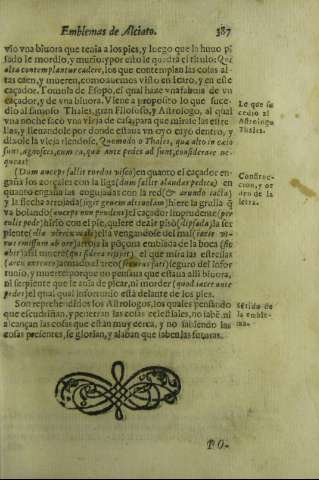 Emblemas de Alciato. 387
vio vna biuora que tenia a los pies, y luego que la huuo pi
sado le mordio, y murio: y por esto le quadra el titulo: Qui
alta contemplantur cadere, los que contemplan las cosas al-
tas caen, y mueren, como auemos visto en Icaro, y en este
caçador. Tomola de Esopo, el qual haze vna fabula de vn
caçador, y de vna biuora. Viene a proposito lo que suce-
dio al famoso Thales, gran Filosofo, y Astrologo, al qual
vna noche sacò vna vieja de casa, para que mirase las estre
llas, y lleuandole por donde estaua vn oyo cayò dentro, y
dixole la vieja riendose, Quomodo o Thales, quæ alto in cælo
sunt, agnosces, cum ea, quæ ante pedes ad sunt, considerare ne-
queas?
(Dum turdos visco) en quanto el caçador en
gaña los zorçales con la liga (dum fallit alaudas pedica) en
quanto engaña las cugujadas con la red (& arundo iacta)
y la flecha arrojada (figit gruem alteuolam) hiere la grulla q̃
va bolando (el caçador imprudente (per
culit pede) hiriò con el pie, quiere dezir pisò (dipsada) la ser
piente (ella vengandose del mal
emissum ab ore) arroja la põçoña embiada de la boca (sic
obit) assi muere (qui sidera respicit) el que mira las estrellas
(arcu extento) armado el arco seguro del infor
tunio, y muerte: porque no pensaua que estaua alli biuora,
ni serpiente que le auia de picar, ni morder (quod iacet ante
pedes) el qual qual infortunio està delante de los pies.
Son reprehendidos los Astrologos, los quales pensando
que escudriñan, y penetran las cosas celestiales, no saben, ni
alcançan las cosas que estàn muy cerca, y no sabiendo las
cosas presentes, se glorian, y alaban que saben las futuras.
Le que su
cedio al
Astrologo
Thales.
Construc-
cion, y or
den de la
letra.
Sētido de
la emble-
ma.
PO-